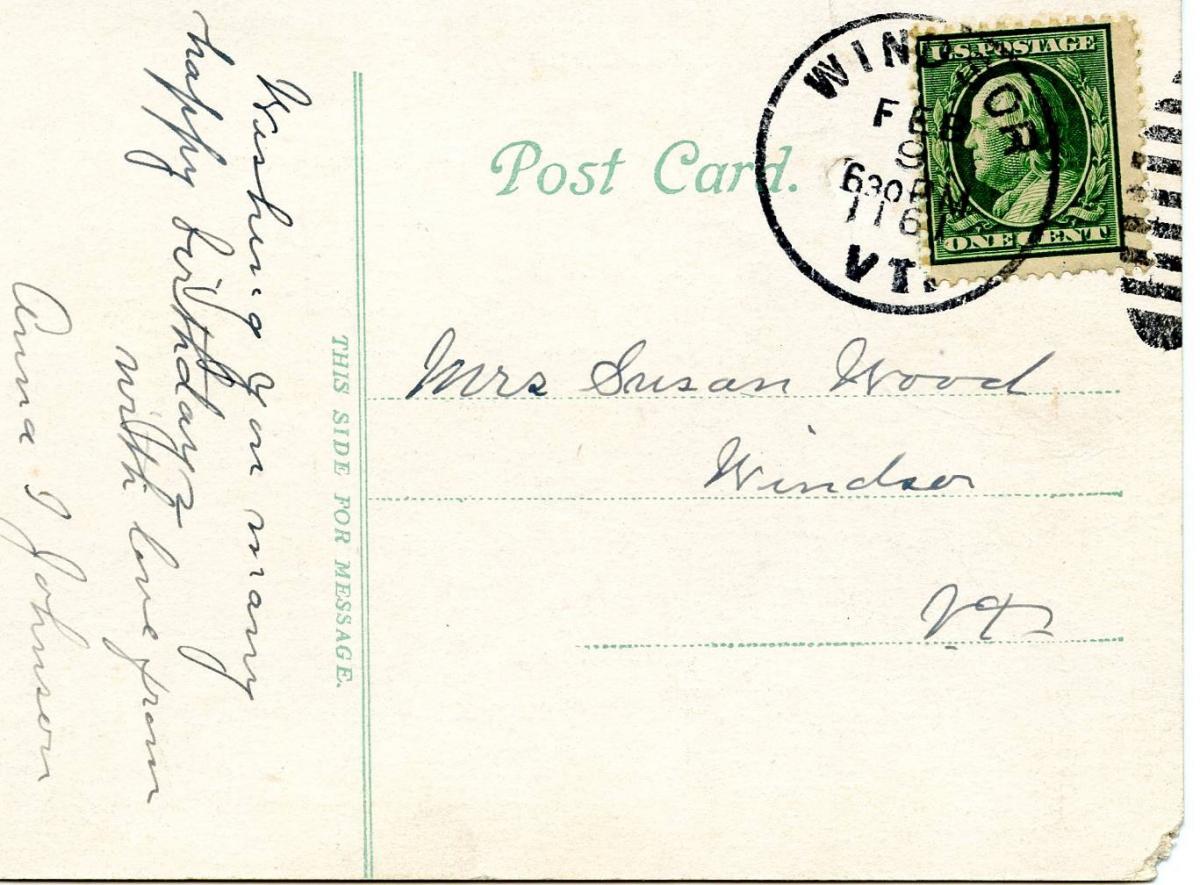 Wishing you many
happy birthdays
with love from
Anna I Johnson
THIS SIDE FOR MESSAGE.
Post Card.
WINDSOR
FEB
9
630 PM
11
VT.
U.S. POSTAGE
ONE CENT
Mrs Susan Wood
Windsor
Vt